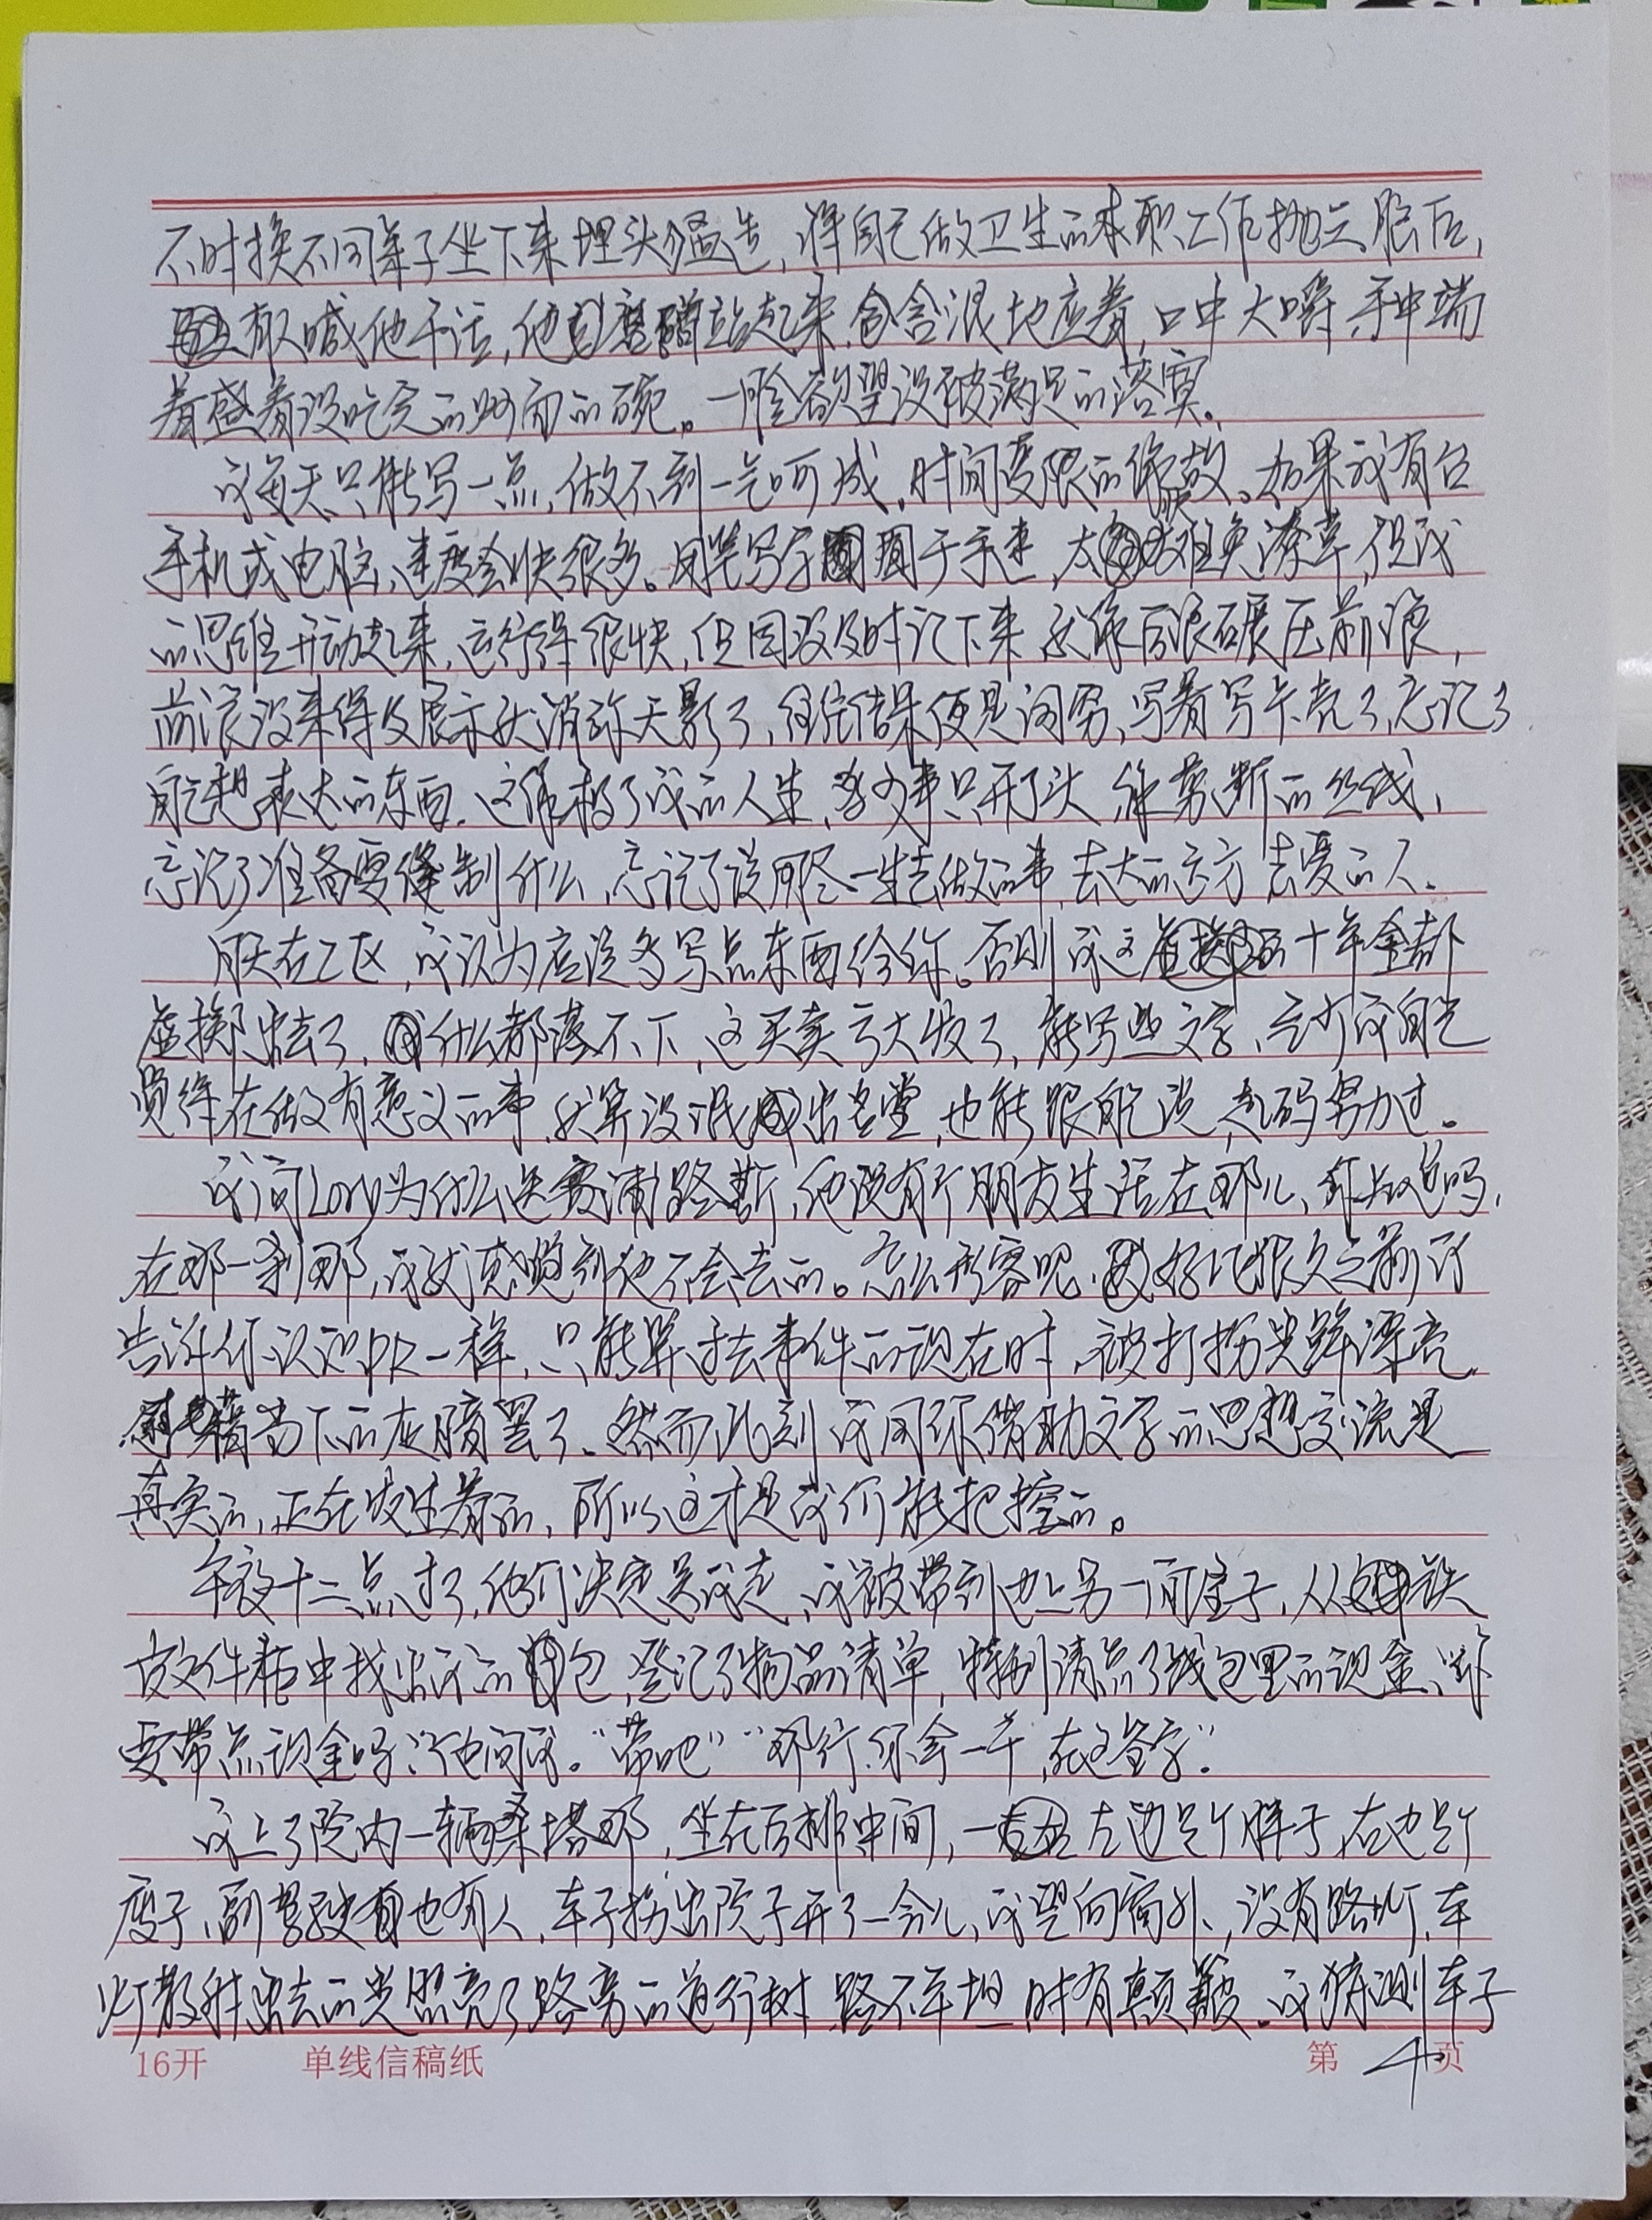 不时换不同桌子坐下来埋头猛造，将自己做卫生的本职工作抛之脑后，
有人喊他干活，他磨蹭站起来，含混地应着，口中大嚼，手中端
着盛着没吃完的粥面的碗。一脸欲望没被满足的落寞。
我每天只能写一点，做不到一气呵成，时间受限的缘故。如果我有台
手机或电脑，速度会快很多。用笔写字囿于手速，太难免潦草，但我
的思维开动起来，运行得很快，但因没及时记下来，就像后浪碾压前浪，
前浪没来得及展示就消弥无影了，结果便是词穷，写着写卡壳了，忘记了
自己想表达的东西。这像极了我的人生，多少事只开了头，像剪断的丝线，
忘记了准备要缝制什么，忘记了该用尽一生去做的事，去大的远方，去爱的人。
在乙区，我认为应该多写点东西给你。否则我这五十年全都
虚掷出去了，什么都落不下，这买卖亏大发了，能写些文字，至少我自己
觉得在做有意义的事，就算没混出名堂，也能跟自己说，起码努力过。
我问Lory为什么选塞浦路斯，他说有个朋友生活在那儿，
在那一刹那，我就感觉到他不会去的。怎么形容呢，好比很久之前我
告诉你认识DR一样，只能算过去事件的现在时，被打捞出来漂亮
当下的灰暗罢了。然而此刻我同你借助文字的思想交流是
真实的，正在发生着的，所以这才是我们能把控的。
午夜十二点过了，他们决定送我走，我被带到边上另一间屋子，从铁
皮文件柜中找出我的包，登记了物品清单，特别清点了钱包里的现金，“你
要带点现金吗？”他问我。“带吧”“那行，你拿一千，在这签字”。
我上了院内一辆桑塔那，坐在后排中间，左边是个胖子，右边是个
瘦子，副驾驶也有人，车子拐出院子开了一会儿，我望向窗外，没有路灯，车
灯散射出去的光照亮了路旁的道行树，路不平坦，时有颠簸。我猜测车子
16开 单线信稿纸 第4页